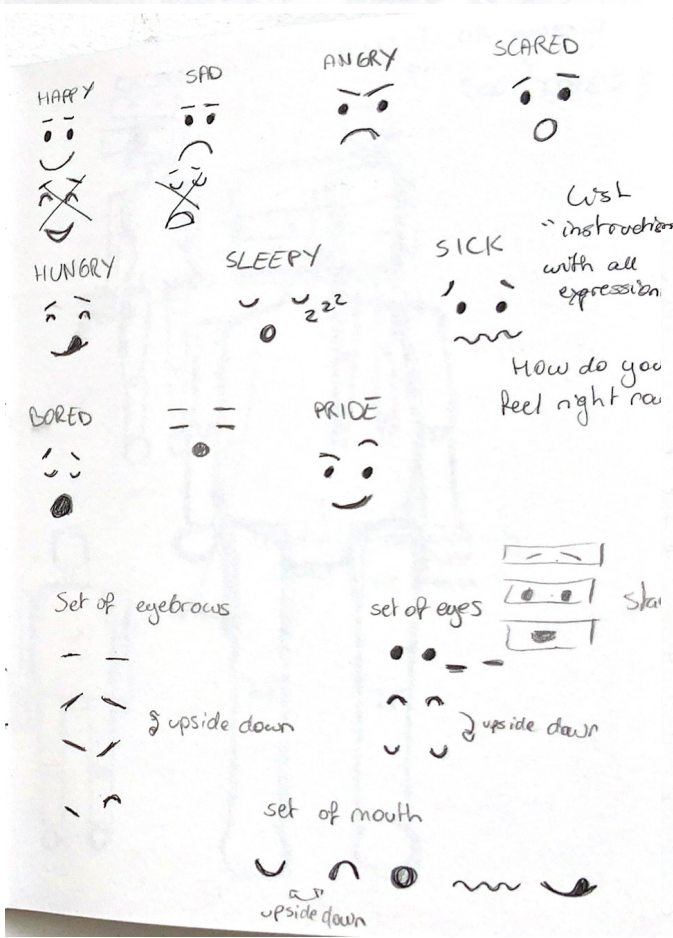 HAPPY
SAD
ANGRY
SCARED
HUNGRY
SLEEPY
zzz
SICK
List
instruction
with all
expression
How do you
feel right
BORED
PRIDE
Set of eyebrows
upside down
set of eyes
upside down
set of mouth
upside down